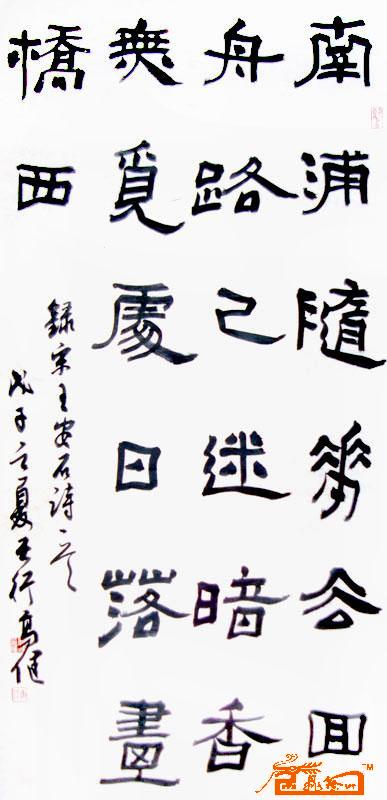 南浦隨華去回
舟路已迷暗香
無覓處日落畫
橋西
録宋王安石詩一首
戊子之夏